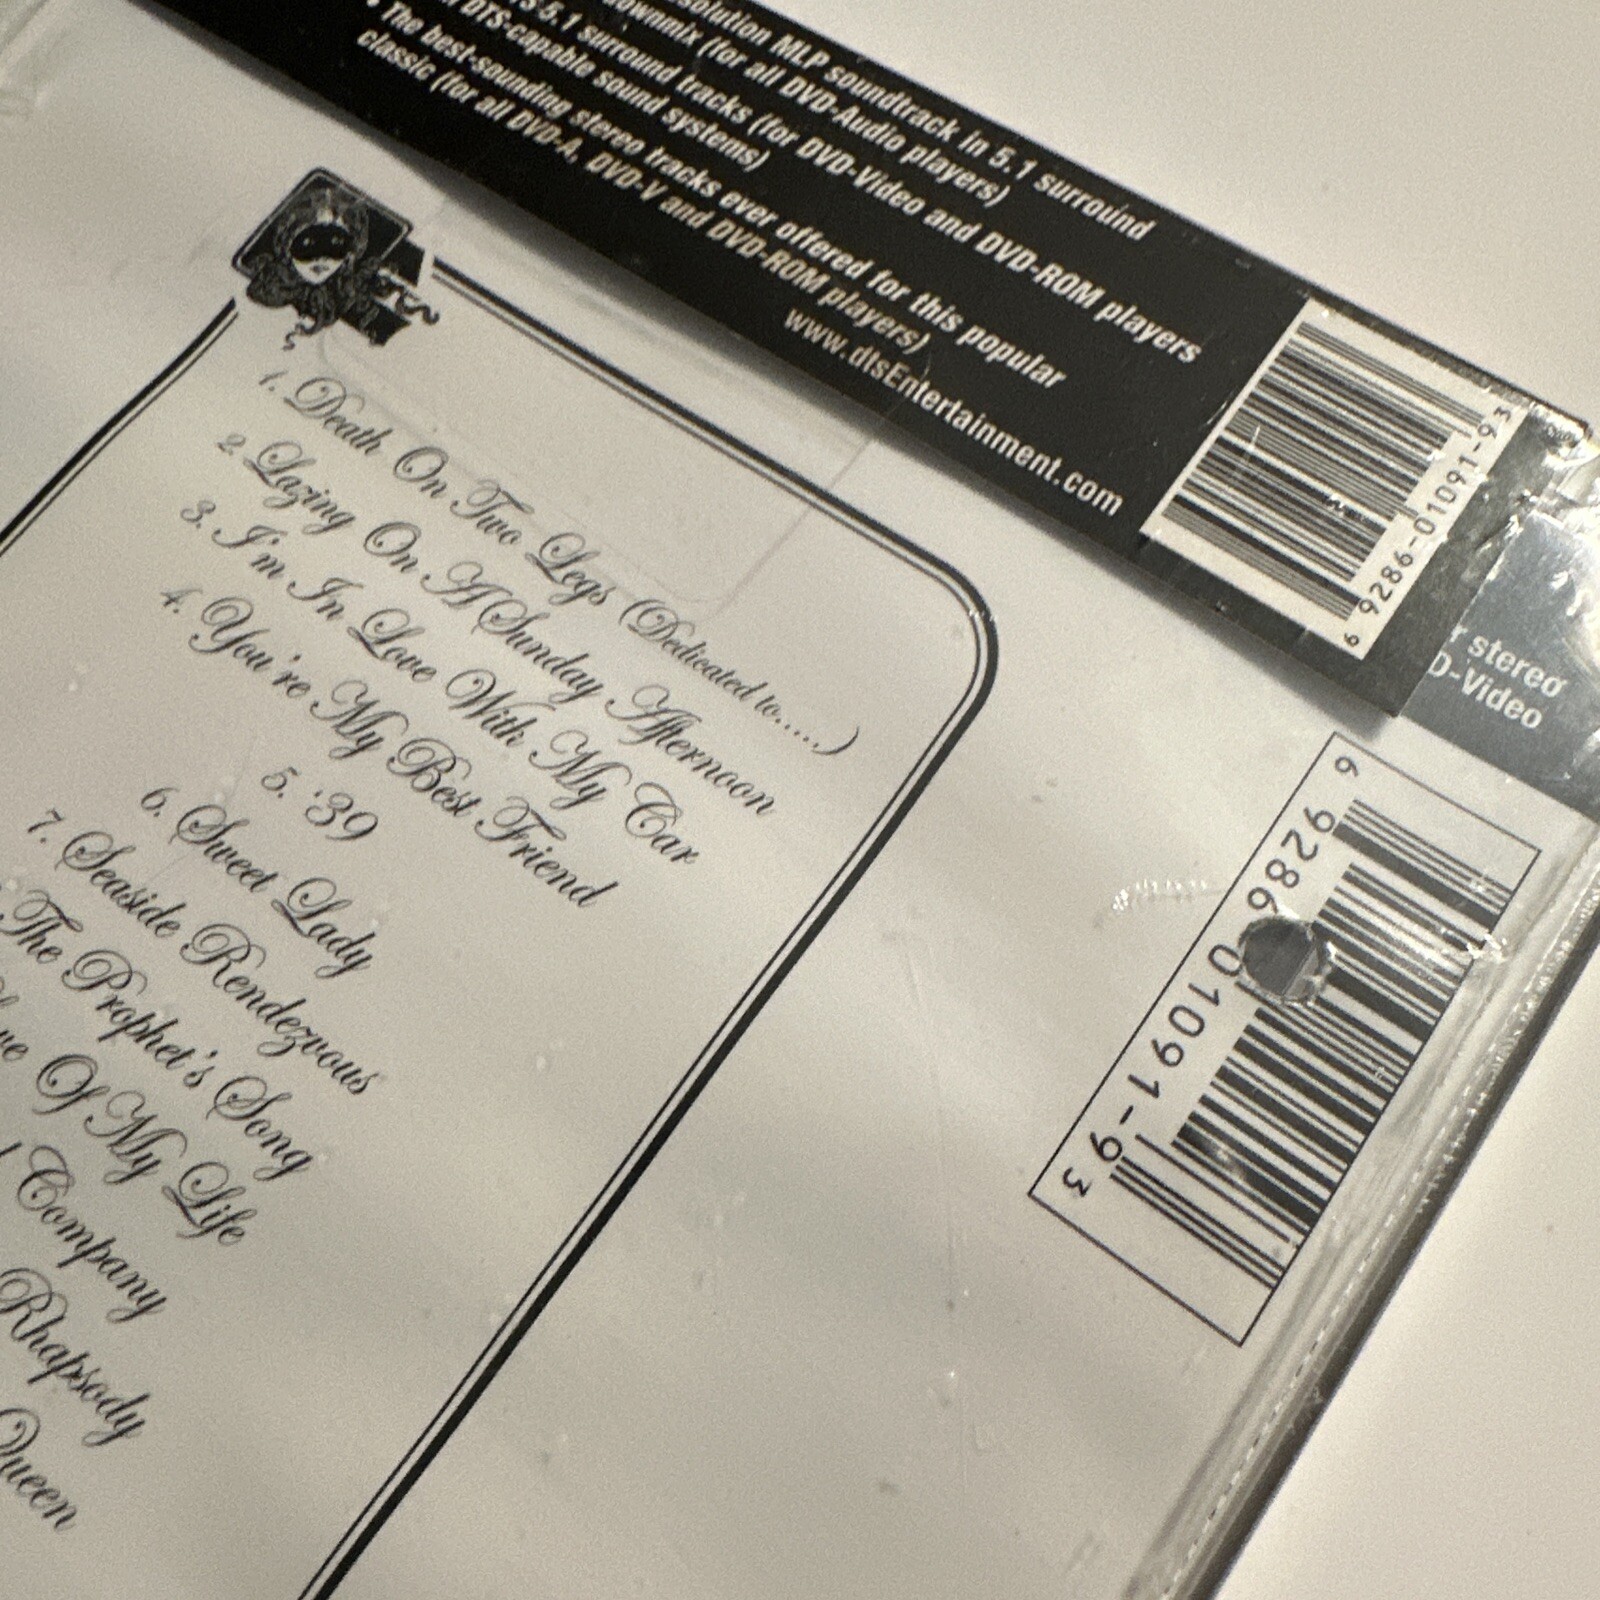 solution MLP soundtrack in 5.1 surround
downmix (for all DVD-Audio players)
5.1 surround tracks (for DVD-Video and DVD-ROM players
DTS-capable sound systems)
• The best-sounding stereo tracks ever offered for this popular
classic (for all DVD-A, DVD-V and DVD-ROM players)
www.dtsEntertainment.com
6 9286-01091-9 3
r stereo
D-Video
1. Death On Two Legs (Dedicated to.....)
2. Lazing On A Sunday Afternoon
3. I'm In Love With My Car
4. You're My Best Friend
5. '39
6. Sweet Lady
7. Seaside Rendezvous
The Prophet's Song
ve Of My Life
Company
Rhapsody
Queen
6 9286 01091-9 3